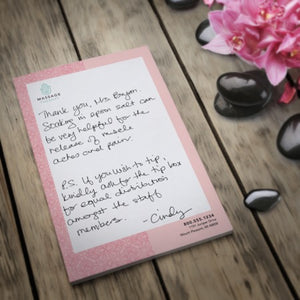 MASSAGE
Thank you, Mrs. Bryan.
Soaking in epsom salt can
be very helpful for the
release of muscle
aches and pain.
P.S. If you wish to tip,
kindly add to the tip box
for equal distribution
amongst the staff
members. - Cindy
800.555.1234
1701 Juniper Drive
Mount Pleasant, MI 48858